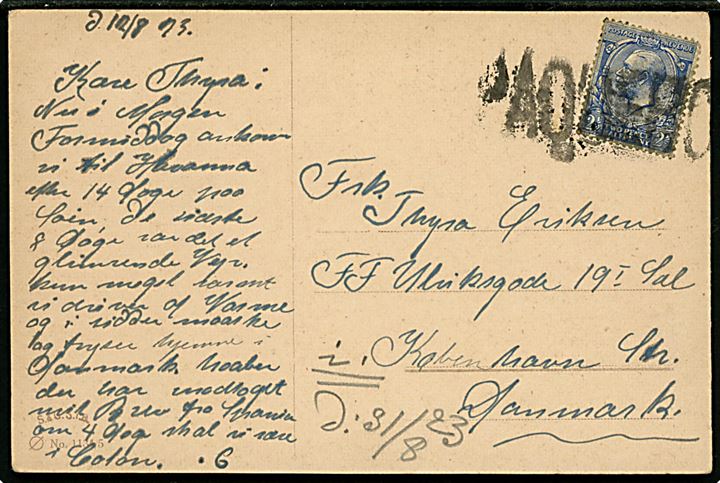 d 12/8 23.
Kære Thyra!
Nu i Morgen
Formiddag ankom
vi til Havanna
efter 14 Dage paa
Søen, de sidste
8 Dage var det et
glimrende Vejr.
kun meget varmt
vi driver af Varme
og i sidder maaske
og fryser hjemme i
Danmark haaber
du har modtaget
mit Brev fra Spanien
om 4 Dage skal vi være
i Colon. . 6
No. 1134 5
PAQUEBO
POSTAGE REVENUE
Frk.
Thyra Eriksen
FF Ulriksgade 19 I Sal
København Str.
Danmark.
D. 31/8 23